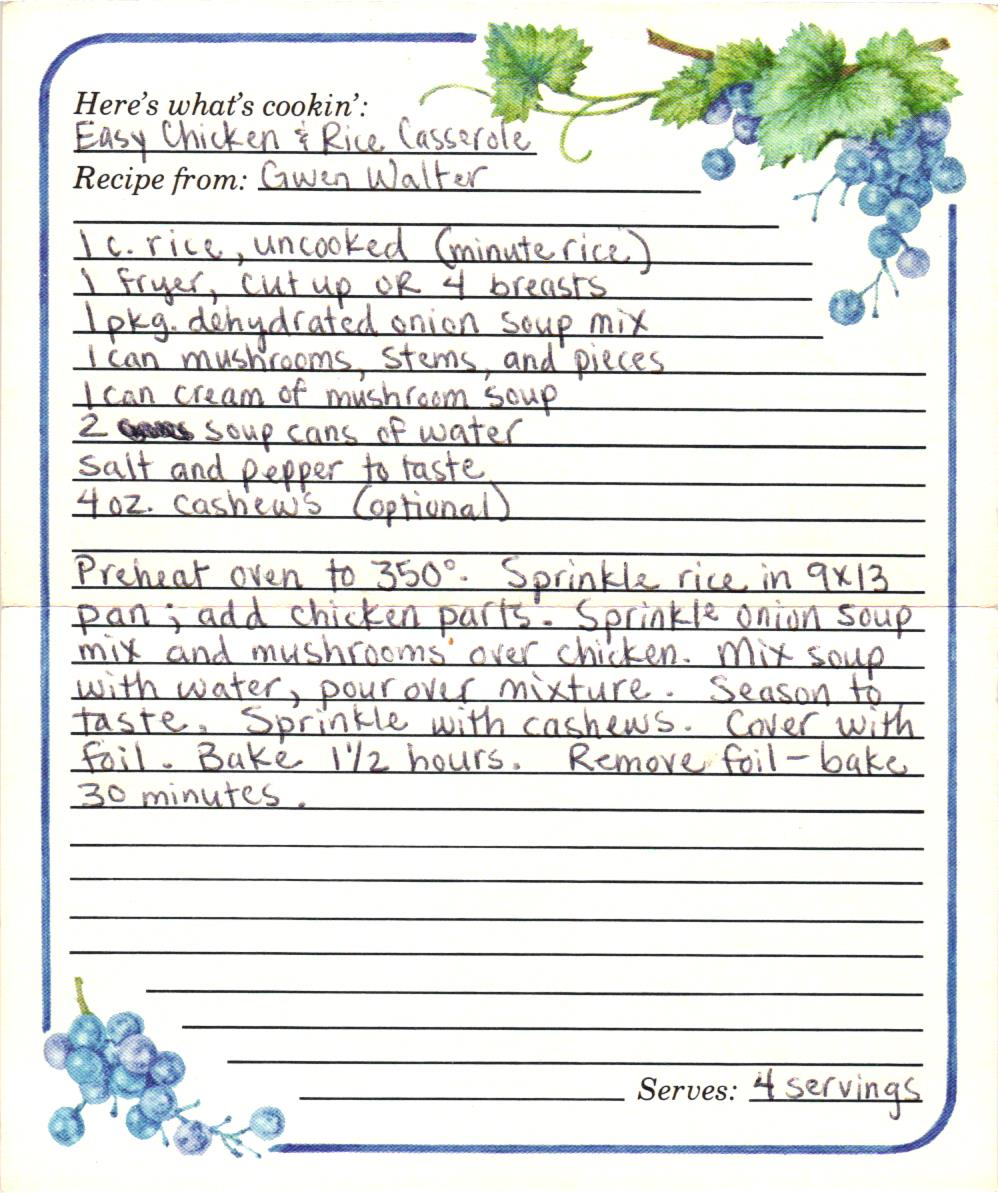 Here's what's cookin':
Easy Chicken & Rice Casserole
Recipe from: Gwen Walter
1 c. rice, uncooked (minute rice)
1 fryer, cut up OR 4 breasts
1 pkg. dehydrated onion soup mix
1 can mushrooms, stems, and pieces
1 can cream of mushroom soup
2 soup cans of water
Salt and pepper to taste
4 oz. cashews (optional)
Preheat oven to 350°. Sprinkle rice in 9x13
pan; add chicken parts. Sprinkle onion soup
mix and mushrooms over chicken. Mix soup
with water, pour over mixture. Season to
taste. Sprinkle with cashews. Cover with
foil. Bake 1 1/2 hours. Remove foil - bake
30 minutes.
Serves: 4 servings